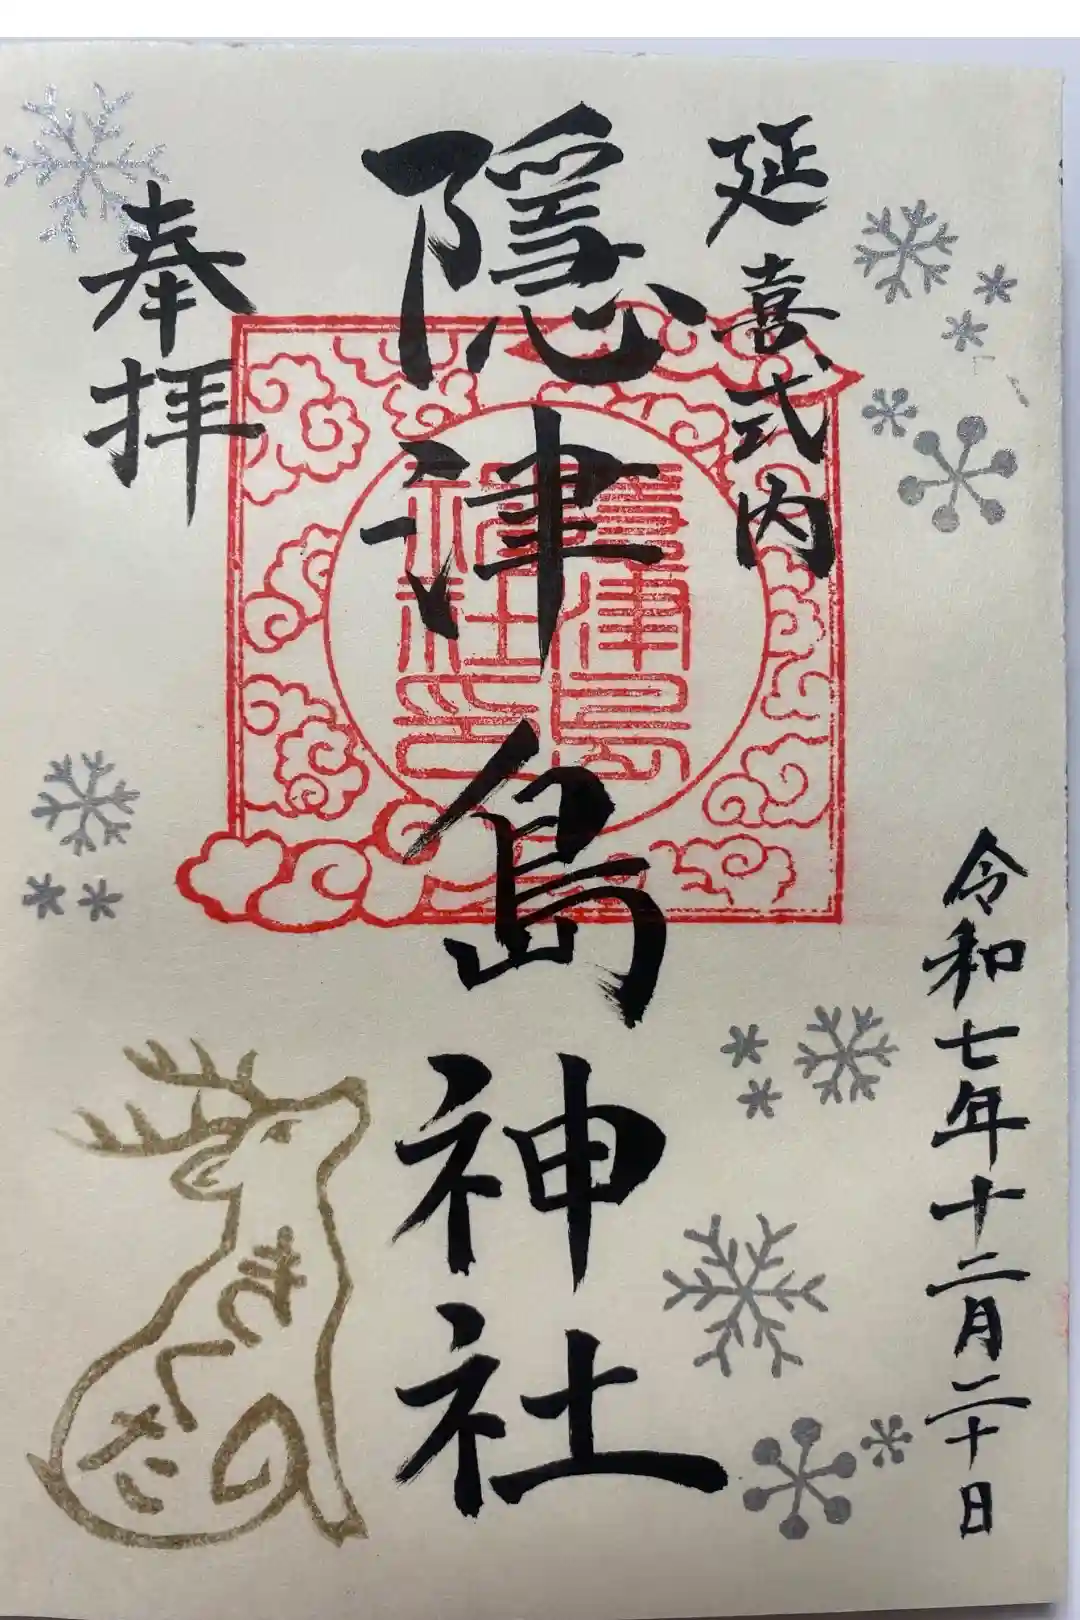 延喜式内
隠津島神社
奉拝
令和七年十二月二十日
隠津島
神社之印